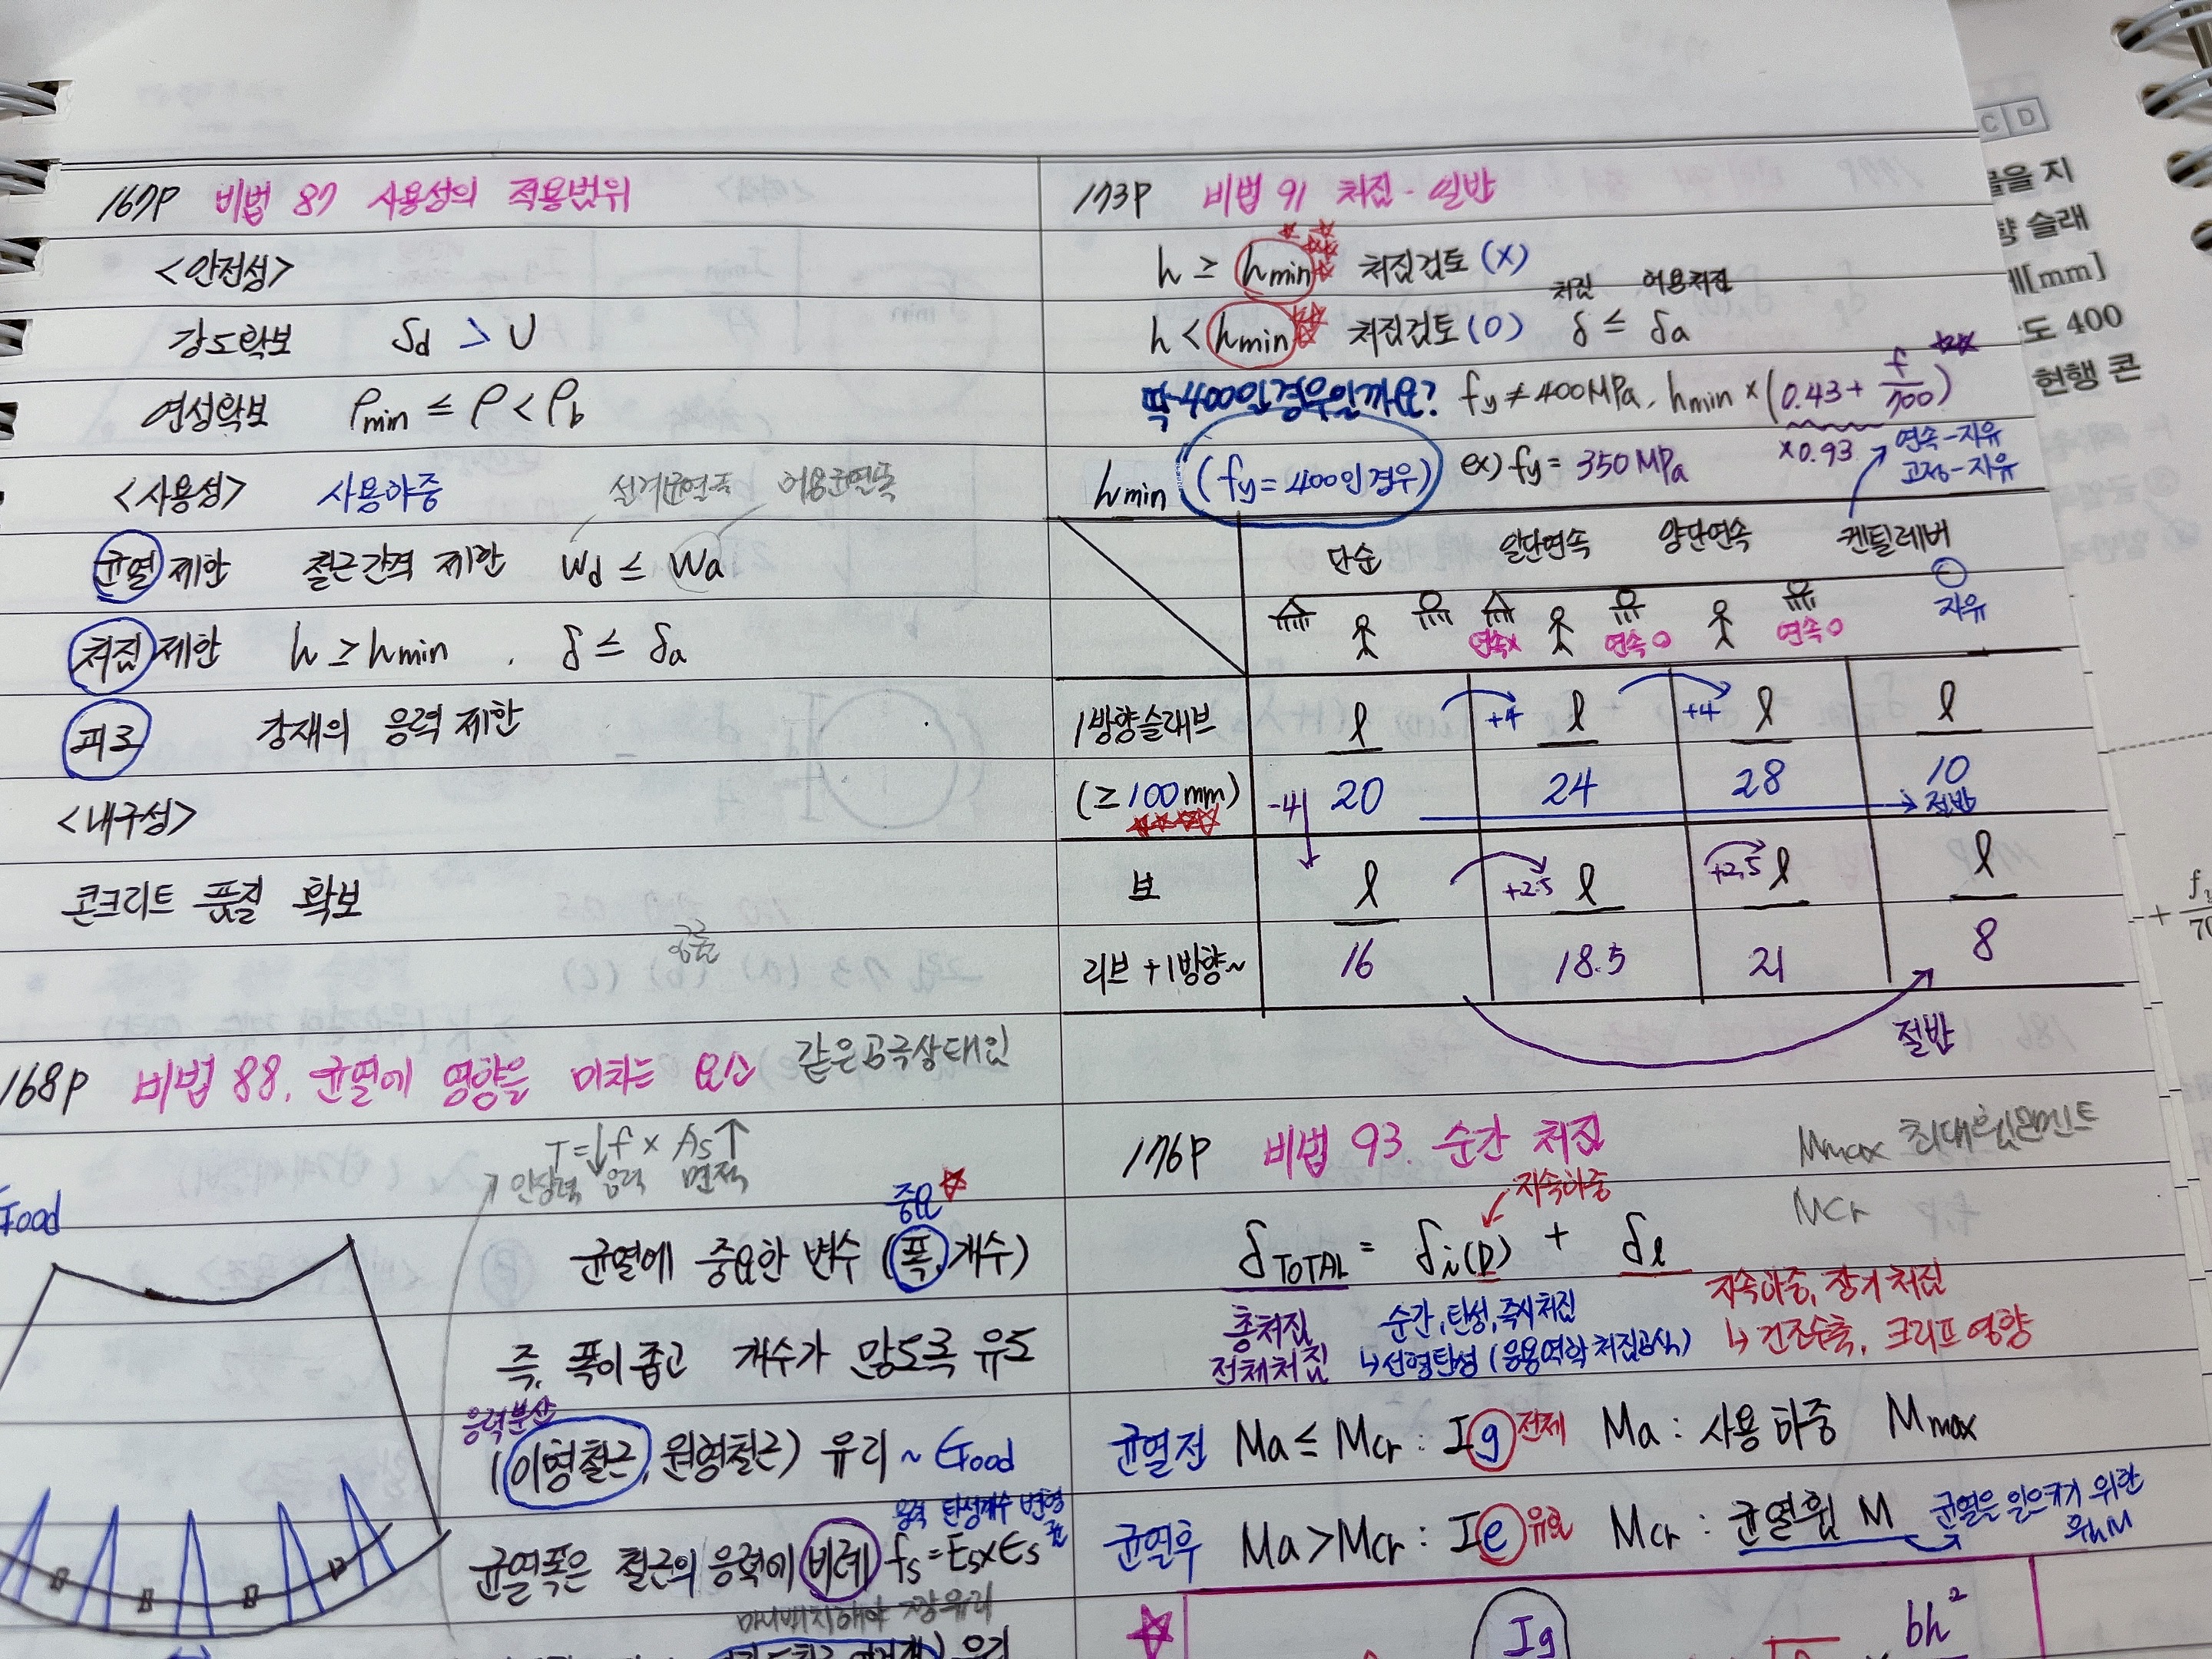 167P 비법 87 사용성의 적용범위
<안전성>
강도확보 Sd > U
연성확보 ρmin ≤ ρ < ρb
<사용성> 사용하중 설계균열폭 허용균열폭
균열 제한 철근간격 제한 Wd ≤ Wa
처짐 제한 h ≥ hmin , δ ≤ δa
피로 강재의 응력 제한
<내구성>
콘크리트 품질 확보
공극
168P 비법 88. 균열에 영향을 미치는 요소 같은공극상태인
T = ↓f × As↑
인장력 응력 면적
Good
중요☆
균열에 중요한 변수 (폭, 개수)
즉, 폭이 좁고 개수가 많도록 유도
응력분산
(이형철근, 원형철근) 유리 ~ Good
응력 탄성계수 변형률
균열폭은 철근의 응력에 비례 fs = Es×Es
유리
173P 비법 91 처짐 - 일반
h ≥ hmin 처짐검토 (X)
처짐 허용처짐
h < hmin 처짐검토 (O) δ ≤ δa
딱 400인경우일까요? fy ≠ 400MPa, hmin × (0.43 + f/700)
×0.93
hmin (fy = 400인 경우) ex) fy = 350 MPa
연속-자유
고정-자유
단순 일단연속 양단연속 켄틸레버
연속X 연속O 연속O 자유
1방향슬래브 l +4 l +4 l l
(≥ 100mm) -4 20 24 28 10
절반
보 l +2.5 l +2.5 l l
리브 + 1방향~ 16 18.5 21 8
절반
176P 비법 93. 순간 처짐 Mmax 최대휨모멘트
지속하중 Mcr
δTOTAL = δi(D) + δl
총처짐 순간, 탄성, 즉시처짐 지속하중, 장기처짐
전체처짐 ↳선형탄성 (응용역학 처짐공식) ↳ 건조수축, 크리프 영향
균열전 Ma ≤ Mcr : Ig 전체 Ma : 사용하중 Mmax
균열후 Ma > Mcr : Ie 유효 Mcr : 균열휨 M 균열을 일으키기 위한
휨M
Ig bh²
C D
글을 지
향 슬래
[mm]
도 400
현행 콘